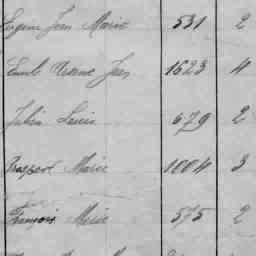 Eugène Jean Marie 531 2
Emile Jean 1623 4
Julien Louis 679 2
Prosper Marie 1004 3
François Marie 575 2